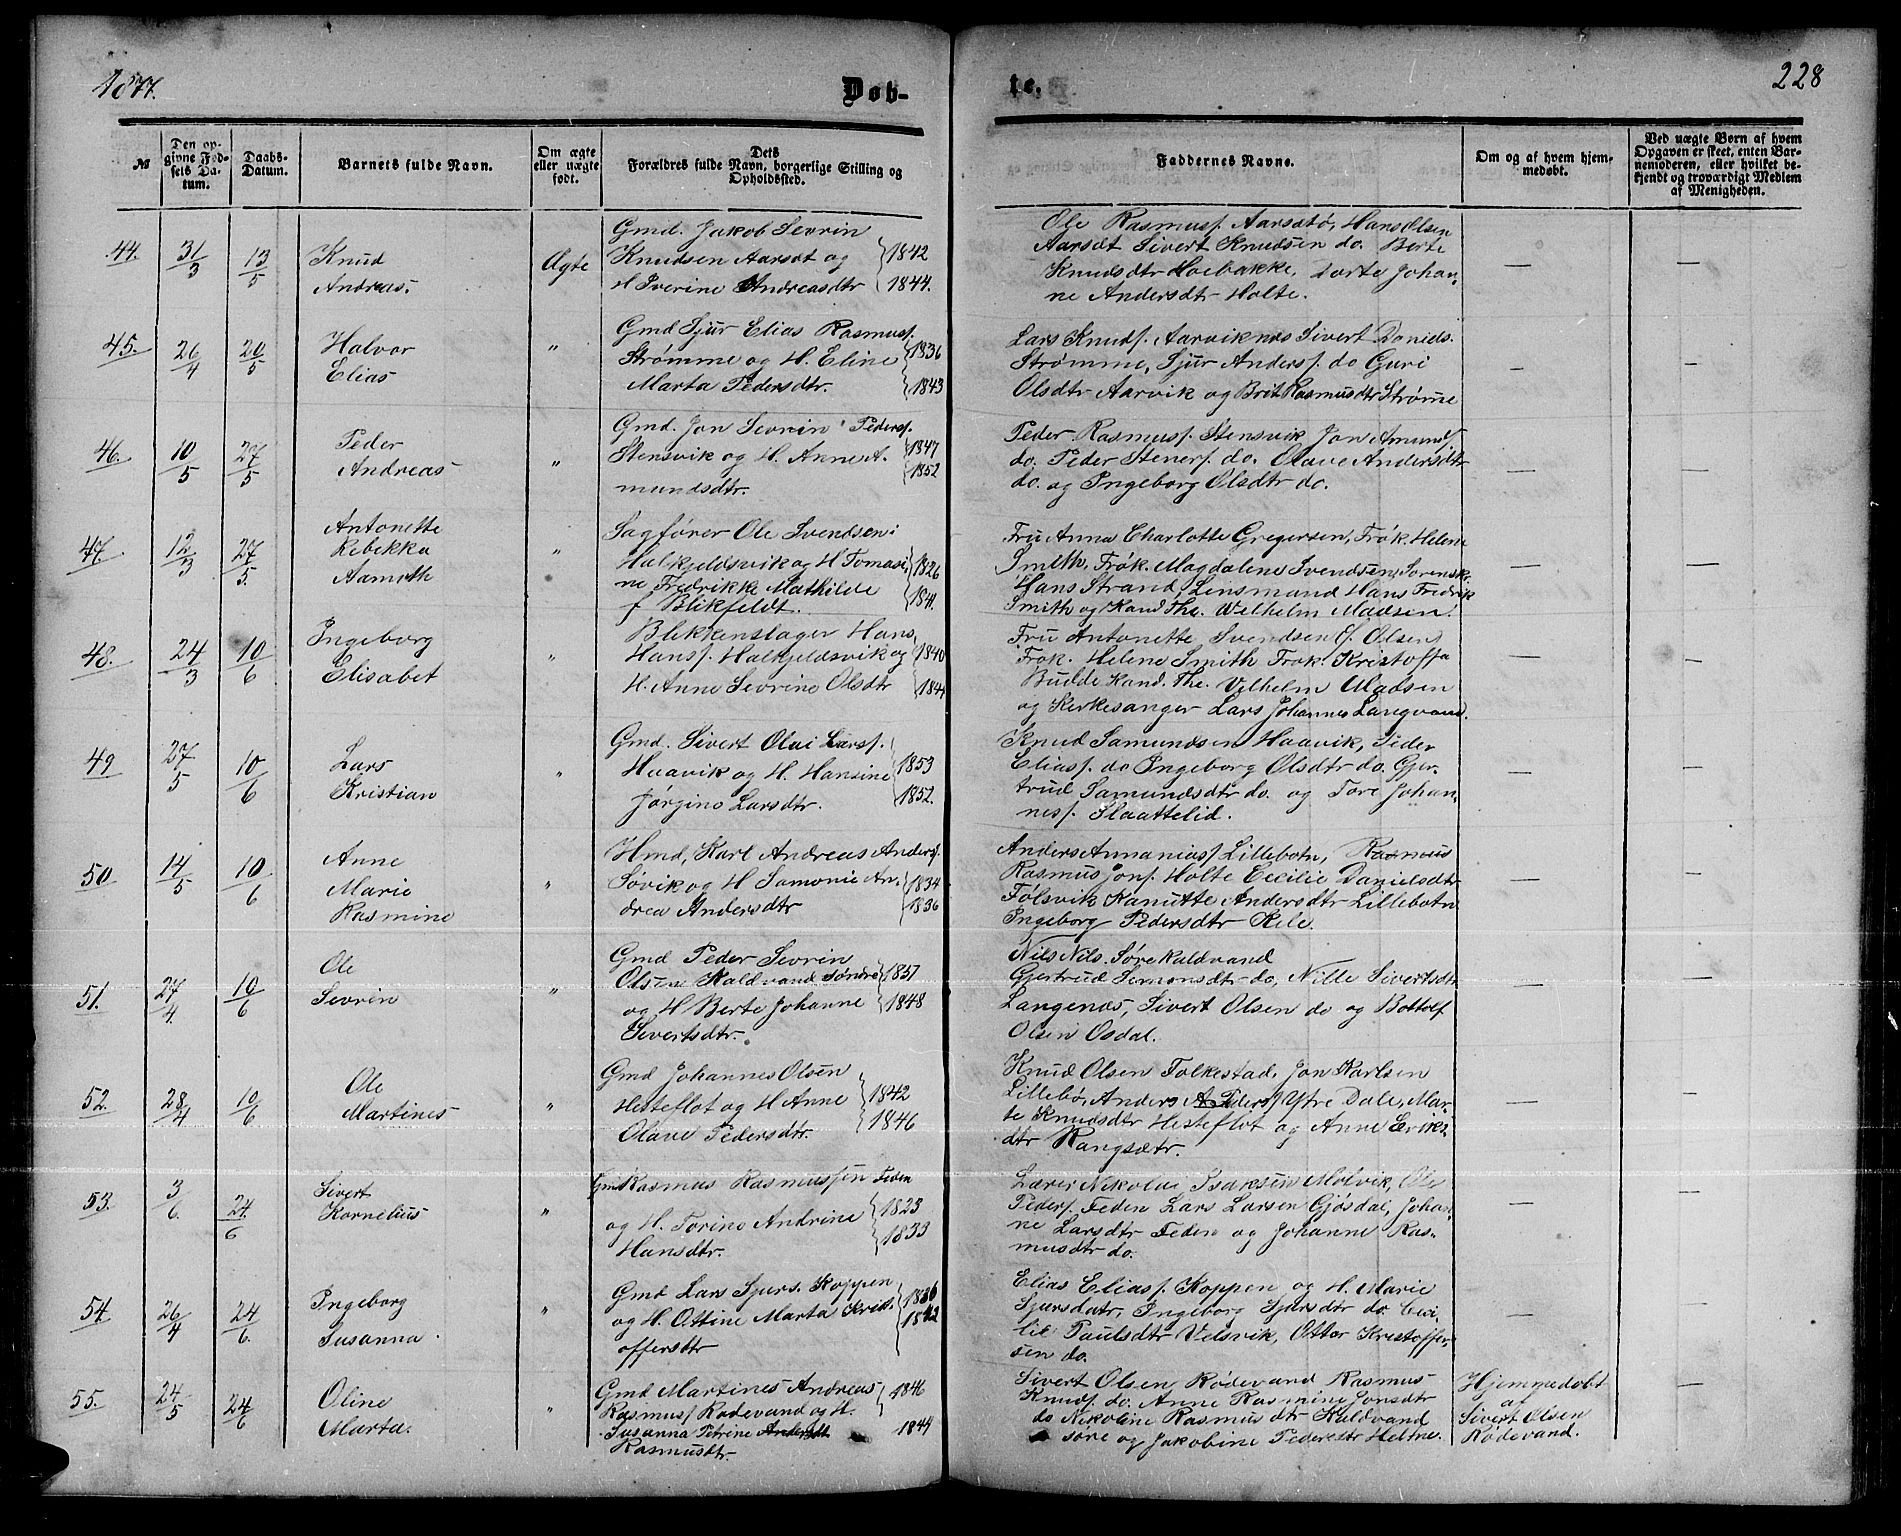 1877.
Døb-
te.
228
№
Den op-
givne Fød-
sels Da-
tum.
Daabs-
Datum.
Barnets fulde Navn.
Om ægte
eller uægte
født.
Dets
Forældres fulde Navn, borgerlige Stilling og
Opholdssted.
Faddernes Navne.
Om og af hvem hjem-
medøbt.
Ved uægte Børn af hvem
Opgaven er skeet, enten Bar-
nemoderen, eller hvilket be-
kjendt og troværdigt Medlem
af Menigheden.
44. 31/3 13/5
Knud
Andreas.
Ægte
Gmd. Jakob Sevrin
Knudsen Aarsæt og 1842
H Iverine Andreasdtr 1844.
Ole Rasmusf. Aarsætø, Hans Olsen
Aarsæt Sivert Knudsen do. Berte
Knudsdtr Hoebakke, Dorte Johan-
ne Andersdtr Holte.
— —
45. 26/4 20/5
Halvor
Elias
"
Gmd Sjur Elias Rasmusf.
Strømme og H. Eline 1836
Marta Pedersdtr. 1843
Lars Knudf. Aarviknes Sivert Danids.
Strømme, Sjur Andersf. do Guri
Olsdtr Aarvik og Brit Rasmusdtr Strøme
— —
46. 10/5 27/5
Peder
Andreas
"
Gmd. Jon Sevrin Pedersf.
Stensvik og H. Anne A- 1847
mundsdtr. 1852
Peder Rasmusf. Stensvik Jon Amundf.
do. Peder Stenerf. do. Olave Andersdtr
do. og Ingeborg Olsdtr do.
— —
47. 12/3 27/5.
Antonette
Rebekka
Aamoth
"
Sagfører Ole Svendsen
Halkjeldsvik og H Tomasi- 1826
ne Fredrikke Mathilde
f Blikfeldt. 1841.
Fru Anna Charlotte Gregersen, Frøk. Helene
Smith, Frøk. Magdalene Svendsen, Sorensk.
Hans Strand, Linsmand Hans Fredrik
Smith og Kand. The. Wilhelm Madsen.
— —
48. 24/3 10/6
Ingeborg
Elisabet
"
Blekkenslager Hans
Hansf. Halkjeldsvik og 1840
H. Anne Sevrine Olsdtr 1844
Fru Antonette Svendsen f. Olsen
Frøk. Helene Smith Frøk. Kristoffa
Budde Kand. The. Vilhelm Madsen
og Kerkesanger Lars Johannes Langvand.
— —
49 27/5 10/6
Lars
Kristian
"
Gmd. Sivert Olai Larsf.
Haavik og H. Hansine 1853
Jørgine Larsdtr. 1852.
Knud Samundsen Haavik, Peder
Eliasf. do Ingeborg Olsdtr do. Gjer-
trud Samundsdtr do. og Tore Johan-
nesf. Slaattelid.
— —
50 14/5 10/6
Anne
Marie
Rasmine
"
Hmd, Karl Andreas Andersf.
Søvik og H Samonie An- 1834
drea Andersdtr 1836
Anders Annaniasf Lillebotn, Rasmus
Rasmus Jonf. Holte Cecilie Danielsdtr
Folsvik Kanutte Andersdtr Lillebotn
Ingeborg Pedersdtr Rele.
— —
51. 27/4. 10/6
Ole
Sevrin
"
Gmd Peder Sevrin
Olsen Kaldvand søndre 1851
og H Berte Johanne 1848
Sivertsdtr.
Nils Nils. Søre Kaldvand
Gjertrud Simonsdtr do, Nille Sivertsdtr
Langenæs, Sivert Olsen do og Bottolf
Olsen Osdal.
— —
52. 28/4 10/6
Ole
Martines
"
Gmd Johannes Olsen
Hesteflot og H Anne 1842
Olave Pedersdtr. 1846
Knud Olsen Folkestad, Jon Karlsen
Lillebø, Anders Pedersf Ytre Dale, Mar-
te Knudsdtr Hesteflot og Anne Eriks-
dtr Rangsætr.
— —
53. 3/6. 24/6
Sivert
Kornelius
"
Gmd Rasmus Rasmussen Feden
og H. Torine Andrine 1823
Hansdtr. 1833
Lærer Nikolai Isaksen Molvik, Ole
Pedersf. Feden Lars Larsen Gjøsdal, Johan-
ne Larsdtr Feden og Johanne Ras-
musdtr do.
— —
54. 26/4 24/6.
Ingeborg
Susanna
"
Gmd Lars Sjurs. Koppen 1836
og H. Ottine Marta Krist- 1842
offersdtr
Elias Eliasf. Koppen og H. Marie
Sjursdatr, Ingeborg Sjursdtr do. Ceci-
lie Paulsdtr Velsvik, Ottar Kristoffer-
sen do.
— —
55. 24/5 24/6
Oline
Marta.
"
Gmd Martines Andreas 1846
Rasmusf Rødevand og H.
Susanna Petrine Andersdt 1844
Rasmusdtr.
Sivert Olsen Rødevand Rasmus
Knudf. do. Anne Rasmine Jonsdtr
do Nikoline Rasmusdtr Kaldvand
søre og Jakobine Pedersdtr Hestne.
Hjemmedøbt
af
Sivert Olsen
Rødevand.
—